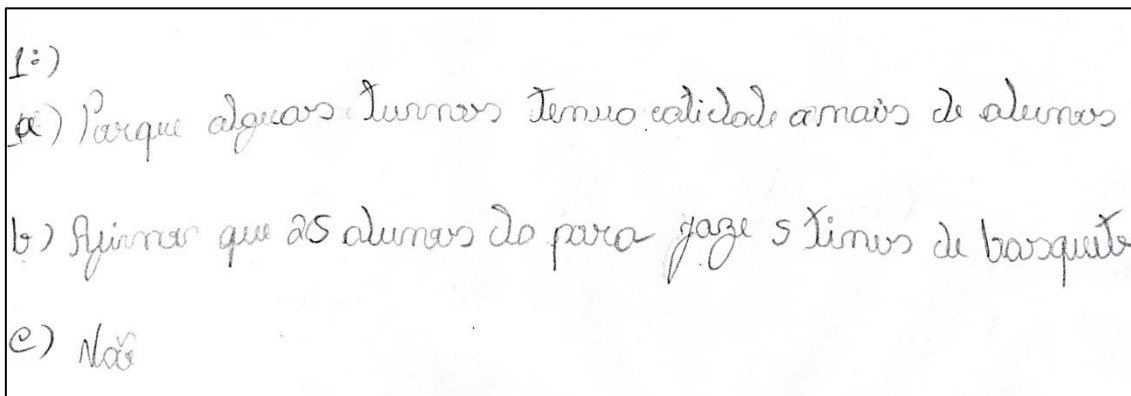 1:)
a) Parque alguas turmas temuo catidade amais de alunos
b) Afirmar que 25 alunos do para faze 5 times de basquite
c) Não